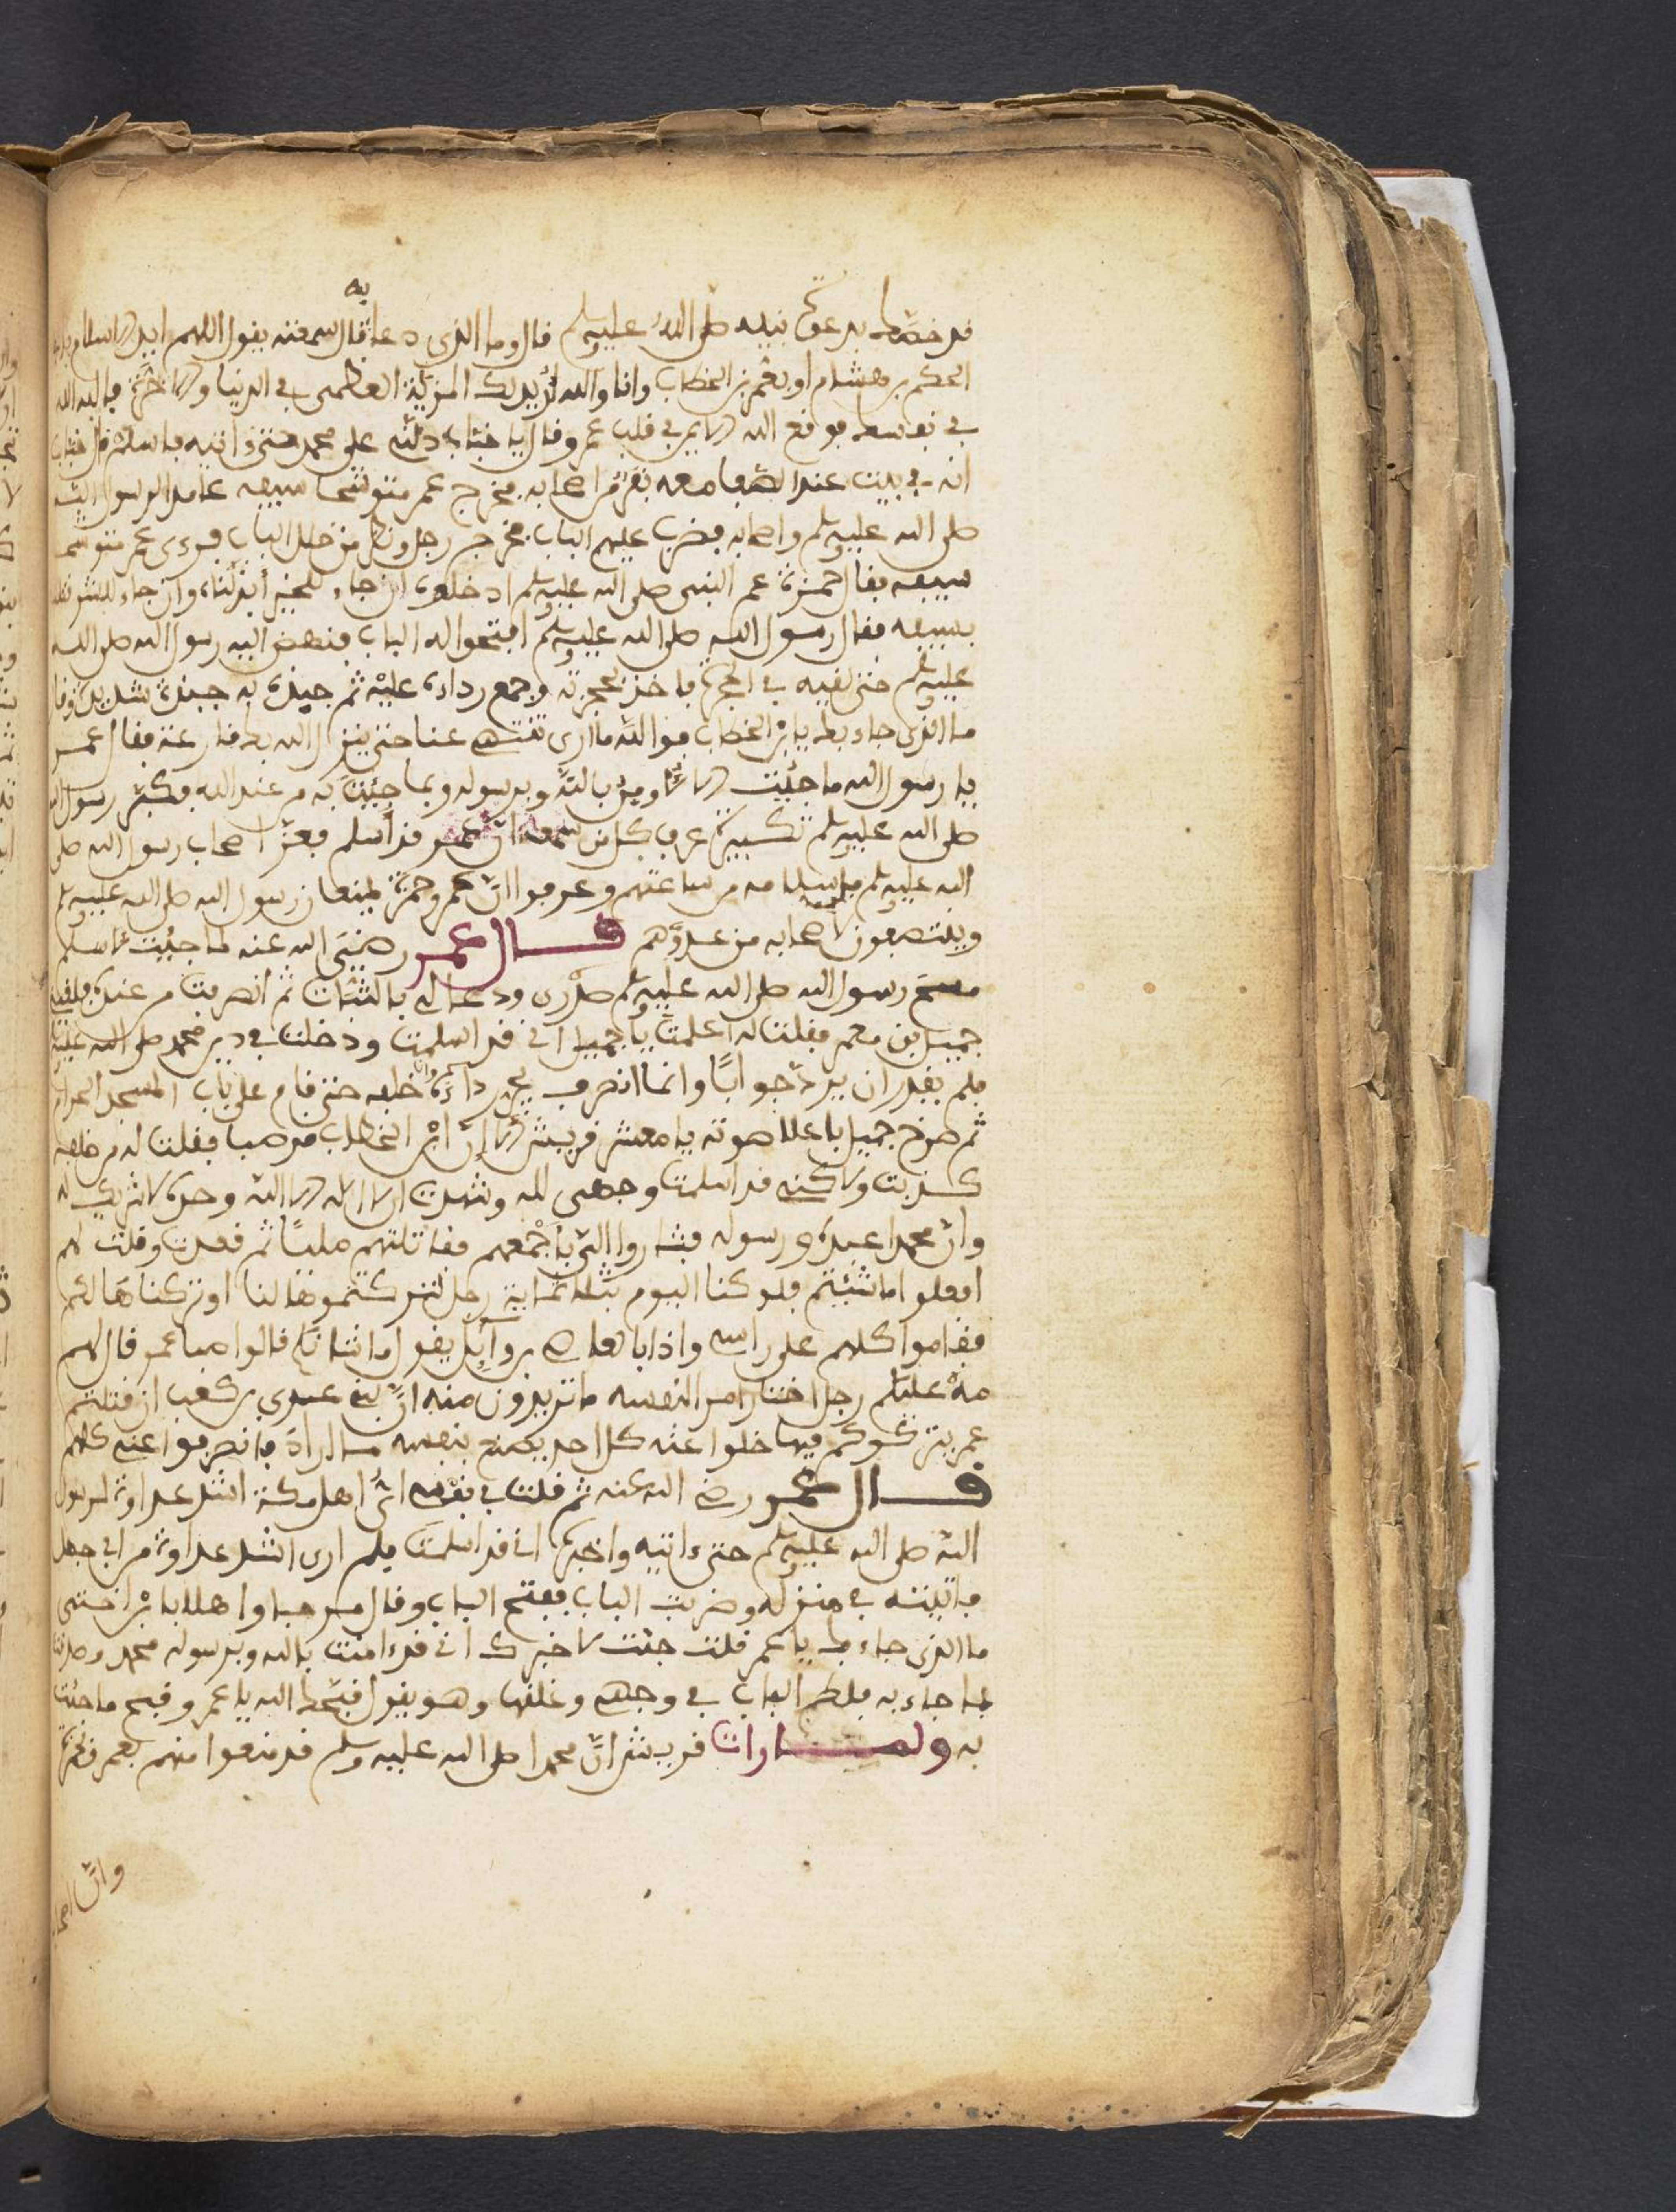 قد خصّك بدعوة نبيه صلى الله عليه وسلم قال وما الذي دعا به قال سمعته يقول اللهم ايد الاسلام بابي
الحكم بن هشام او بعمر بن الخطاب وانا والله اريد لك المنزلة العظمى في الدنيا والاخرة فالله الله
في نفسك فوقع الله الايمن في قلب عمر وقال يا خبّاب دلني على محمد حتى ءاتيه فاسلم قال خباب
انه في بيت عند الصفا معه نفر من اصحابه فخرج عمر متوشحا سيفه عامدا لرسول الله
صلى الله عليه وسلم واصحابه فضرب عليهم الباب فخرج رجل ونظر من خلل الباب فرءى عمر متوشحا
سيفه فقال حمزة عم النبي صلى الله عليه وسلم ادخلوه ان جاء للخير ابذلناه وان جاء للشر نقتله
بسيفه فقال رسول الله صلى الله عليه وسلم افتحوا له الباب فنهض اليه رسول الله صلى الله
عليه وسلم حتى لقيه في الحجرة فاخذ بحجزته وجمع رداءه عليه ثم جبذه به جبذة شديدة وقال
ما الذي جاء بك يا بن الخطاب فوالله ما ارى تنتهي عنا حتى ينزل الله بك قارعة فقال عمر
يا رسول الله ما جئت الا لاومن بالله وبرسوله وبما جئت به من عند الله فكبّر رسول الله
صلى الله عليه وسلم تكبيرة عرف كل من سمعه ان عمر قد اسلم فعزّ اصحاب رسول الله صلى
الله عليه وسلم باسلامه من ساعتهم وعرفوا ان عمر وحمزة يمنعان رسول الله صلى الله عليه وسلم
وينتصفون لاصحابه من عدوّهم قال عمر رضي الله عنه لما جئت لاسلم
مسح رسول الله صلى الله عليه وسلم صدري ودعا لي بالثبات ثم انصرفت من عنده فلقيت
جميل بن معمر فقلت له اعلمت يا جميل اني قد اسلمت ودخلت في دين محمد صلى الله عليه
فلم يقدر ان يرد جوابًا وانما انصرف يجر رداءه وانا خلفه حتى قام على باب المسجد الحرام
ثم صرخ جميل باعلا صوته يا معشر قريش الا إنّ ابن الخطاب قد صبا فقلت له من خلفه
كذبت ولاكنه قد اسلمت وجهي لله وشهدت ان لا اله الا الله وحده لا شريك له
وانّ محمدا عبده ورسوله فثاروا اليّ باجمعهم فقاتلتهم مليّا ثم قعدت وقلت لهم
افعلوا ما شئتم فلو كنا اليوم ثلاثماية رجل لتركتموها لنا او تركناها لكم
فقاموا كلهم على راسه واذا بالعاصي بن وايل يقول ما شانكم قالوا صبا عمر قال لهم
مه عليكم رجل اختار امرا لنفسه ما تريدون منه انّ بني عدي بن كعب ان قتلتم
عمر يتركوكم فيها خلوا عنه كل احد يصنع بنفسه ما اراد فانصرفوا عنه كلهم
قال عمر رضي الله عنه ثم قلت في نفسي ايّ اهل مكة اشد عداوة لرسول
الله صلى الله عليه وسلم حتى ءاتيه واخبره اني قد اسلمت فلم ارى اشد عداوة من ابي جهل
فاتيته في منزله وضربت الباب ففتح الباب وقال مرحبا واهلا بابن اختي
ما الذي جاء بك يا عمر قلت جئت لاخبرك اني قد ءامنت بالله وبرسوله محمد وصدقت
بما جاء به فلطم الباب في وجهي وغلقه وهو يقول قبّحك الله يا عمر وقبح ما جئت
به ولما رات قريش انّ محمدا صلى الله عليه وسلم قد منعوا منهم بعمر وحمزة
وانّ اصحا